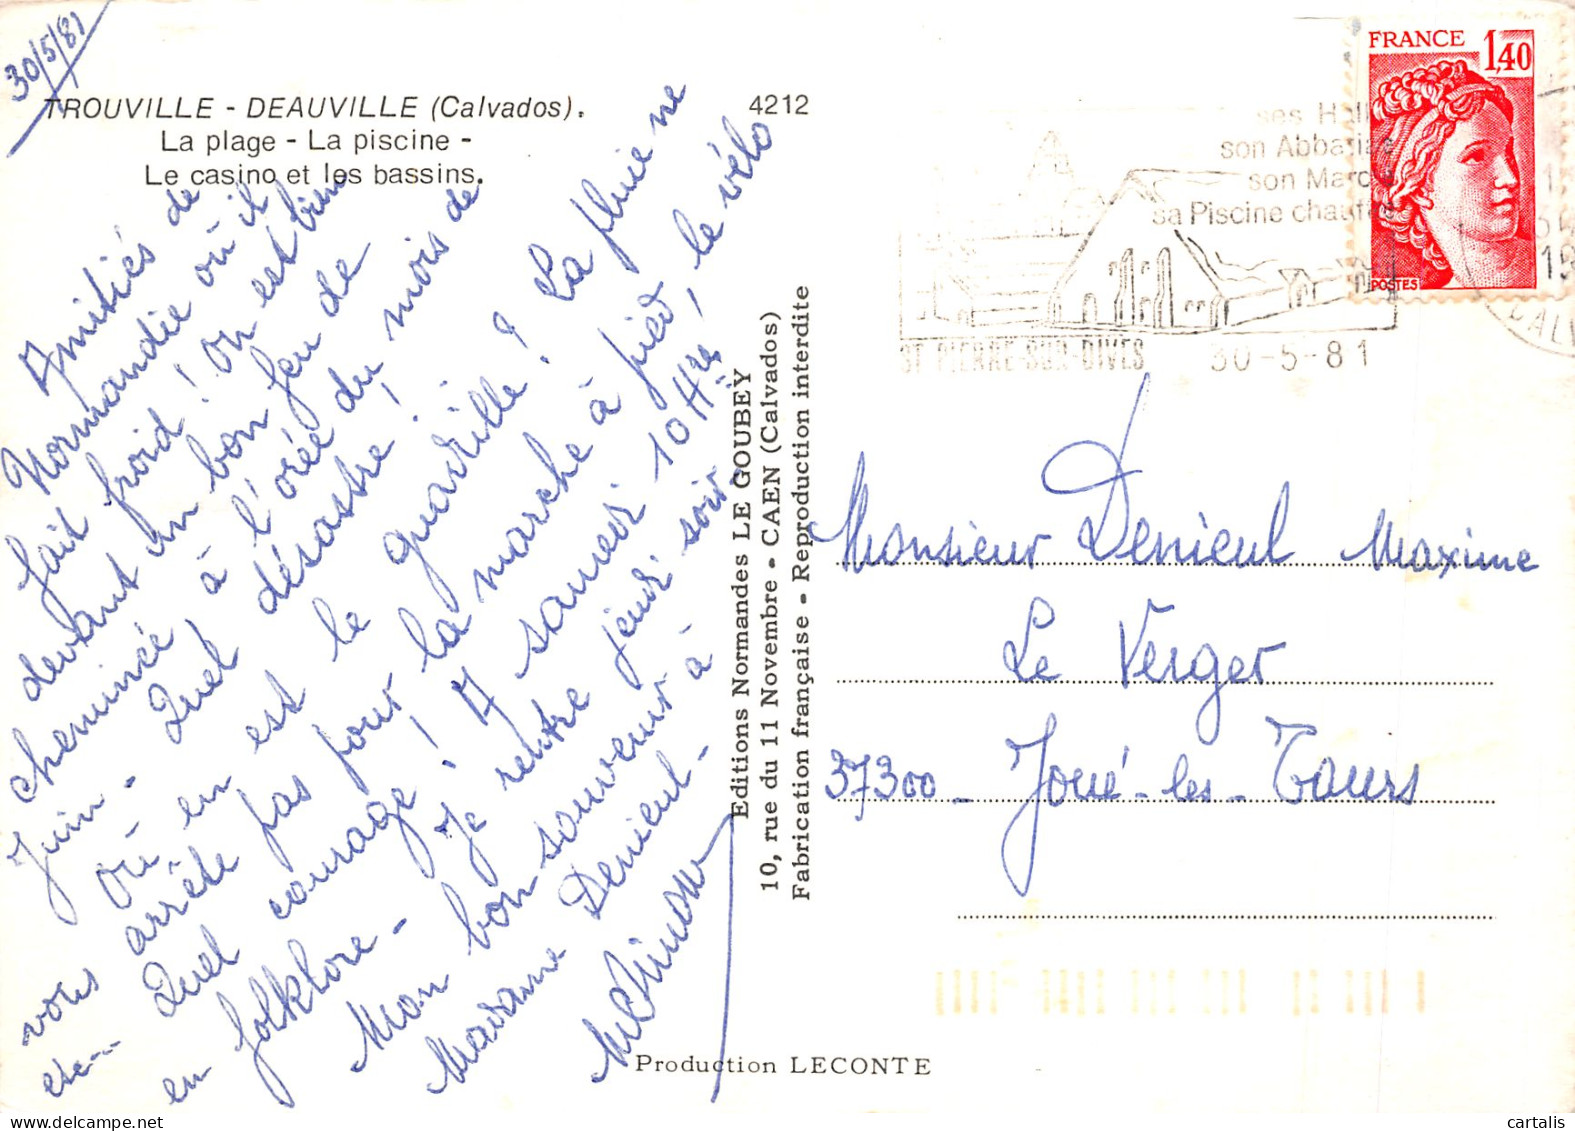 30/5/81
TROUVILLE - DEAUVILLE (Calvados).
La plage - La piscine -
Le casino et les bassins.
4212
Amitiés de
Normandie où il
fait froid! On est bien
devant un bon feu de
cheminée, à l'orée du mois de
Juin - Quel désastre!
Où en est le quadrille? La pluie ne
vous arrête pas pour la marche à pied, le vélo
etc... Quel courage! A samedi 10Hres
en folklore - Je rentre jeudi soir -
Mon bon souvenir à
Madame Denieul -
Editions Normandes LE GOUBEY
10, rue du 11 Novembre - CAEN (Calvados)
Fabrication française - Reproduction interdite
Production LECONTE
ses Hall
son Abbatiale
son March
sa Piscine chauff
ST PIERRE-SUR-DIVES
30-5-81
FRANCE 1,40
POSTES
CALV
Monsieur Denieul Maxime
Le Verger
37300 - Joué-les-Tours
cartalis